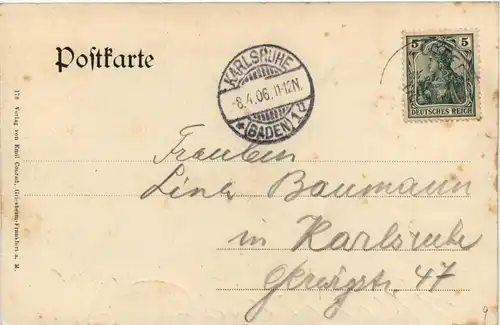 Postkarte
KARLSRUHE
-8.4.06. 11-12N.
*(BADEN)1d
5 5
DEUTSCHES REICH
178 Verlag von Emil Conrad, Griesheim-Frankfurt a. M.
Fräulein
Lina Baumann
in Karlsruhe
Gerwigstr. 47
9